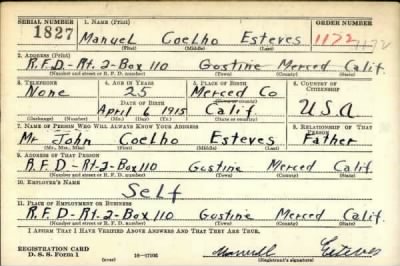 SERIAL NUMBER 1. NAME (Print) ORDER NUMBER
1827 Manuel Coelho Esteves 1172 1172
(First) (Middle) (Last)
2. ADDRESS (Print)
R.F.D-Rt.2-Box 110 Gustine Merced Calif.
(Number and street or R. F. D. number) (Town) (County) (State)
3. TELEPHONE 4. AGE IN YEARS 5. PLACE OF BIRTH 6. COUNTRY OF CITIZENSHIP
None 25 Merced Co
DATE OF BIRTH (Town or county)
April 6 1915 Calif U.S.A
(Exchange) (Number) (Mo.) (Day) (Yr.) (State or country)
7. NAME OF PERSON WHO WILL ALWAYS KNOW YOUR ADDRESS 8. RELATIONSHIP OF THAT PERSON
Mr John Coelho Esteves Father
(Mr., Mrs., Miss) (First) (Middle) (Last)
9. ADDRESS OF THAT PERSON
R.F.D-Rt-2-Box 110 Gustine Merced Calif.
(Number and street or R. F. D. number) (Town) (County) (State)
10. EMPLOYER'S NAME
Self
11. PLACE OF EMPLOYMENT OR BUSINESS
R.F.D-Rt-2-Box 110 Gustine Merced Calif.
(Number and street or R. F. D. number) (Town) (County) (State)
I AFFIRM THAT I HAVE VERIFIED ABOVE ANSWERS AND THAT THEY ARE TRUE.
REGISTRATION CARD
D. S. S. Form 1 (over) 16—17105 Manuel Esteves
(Registrant's signature)